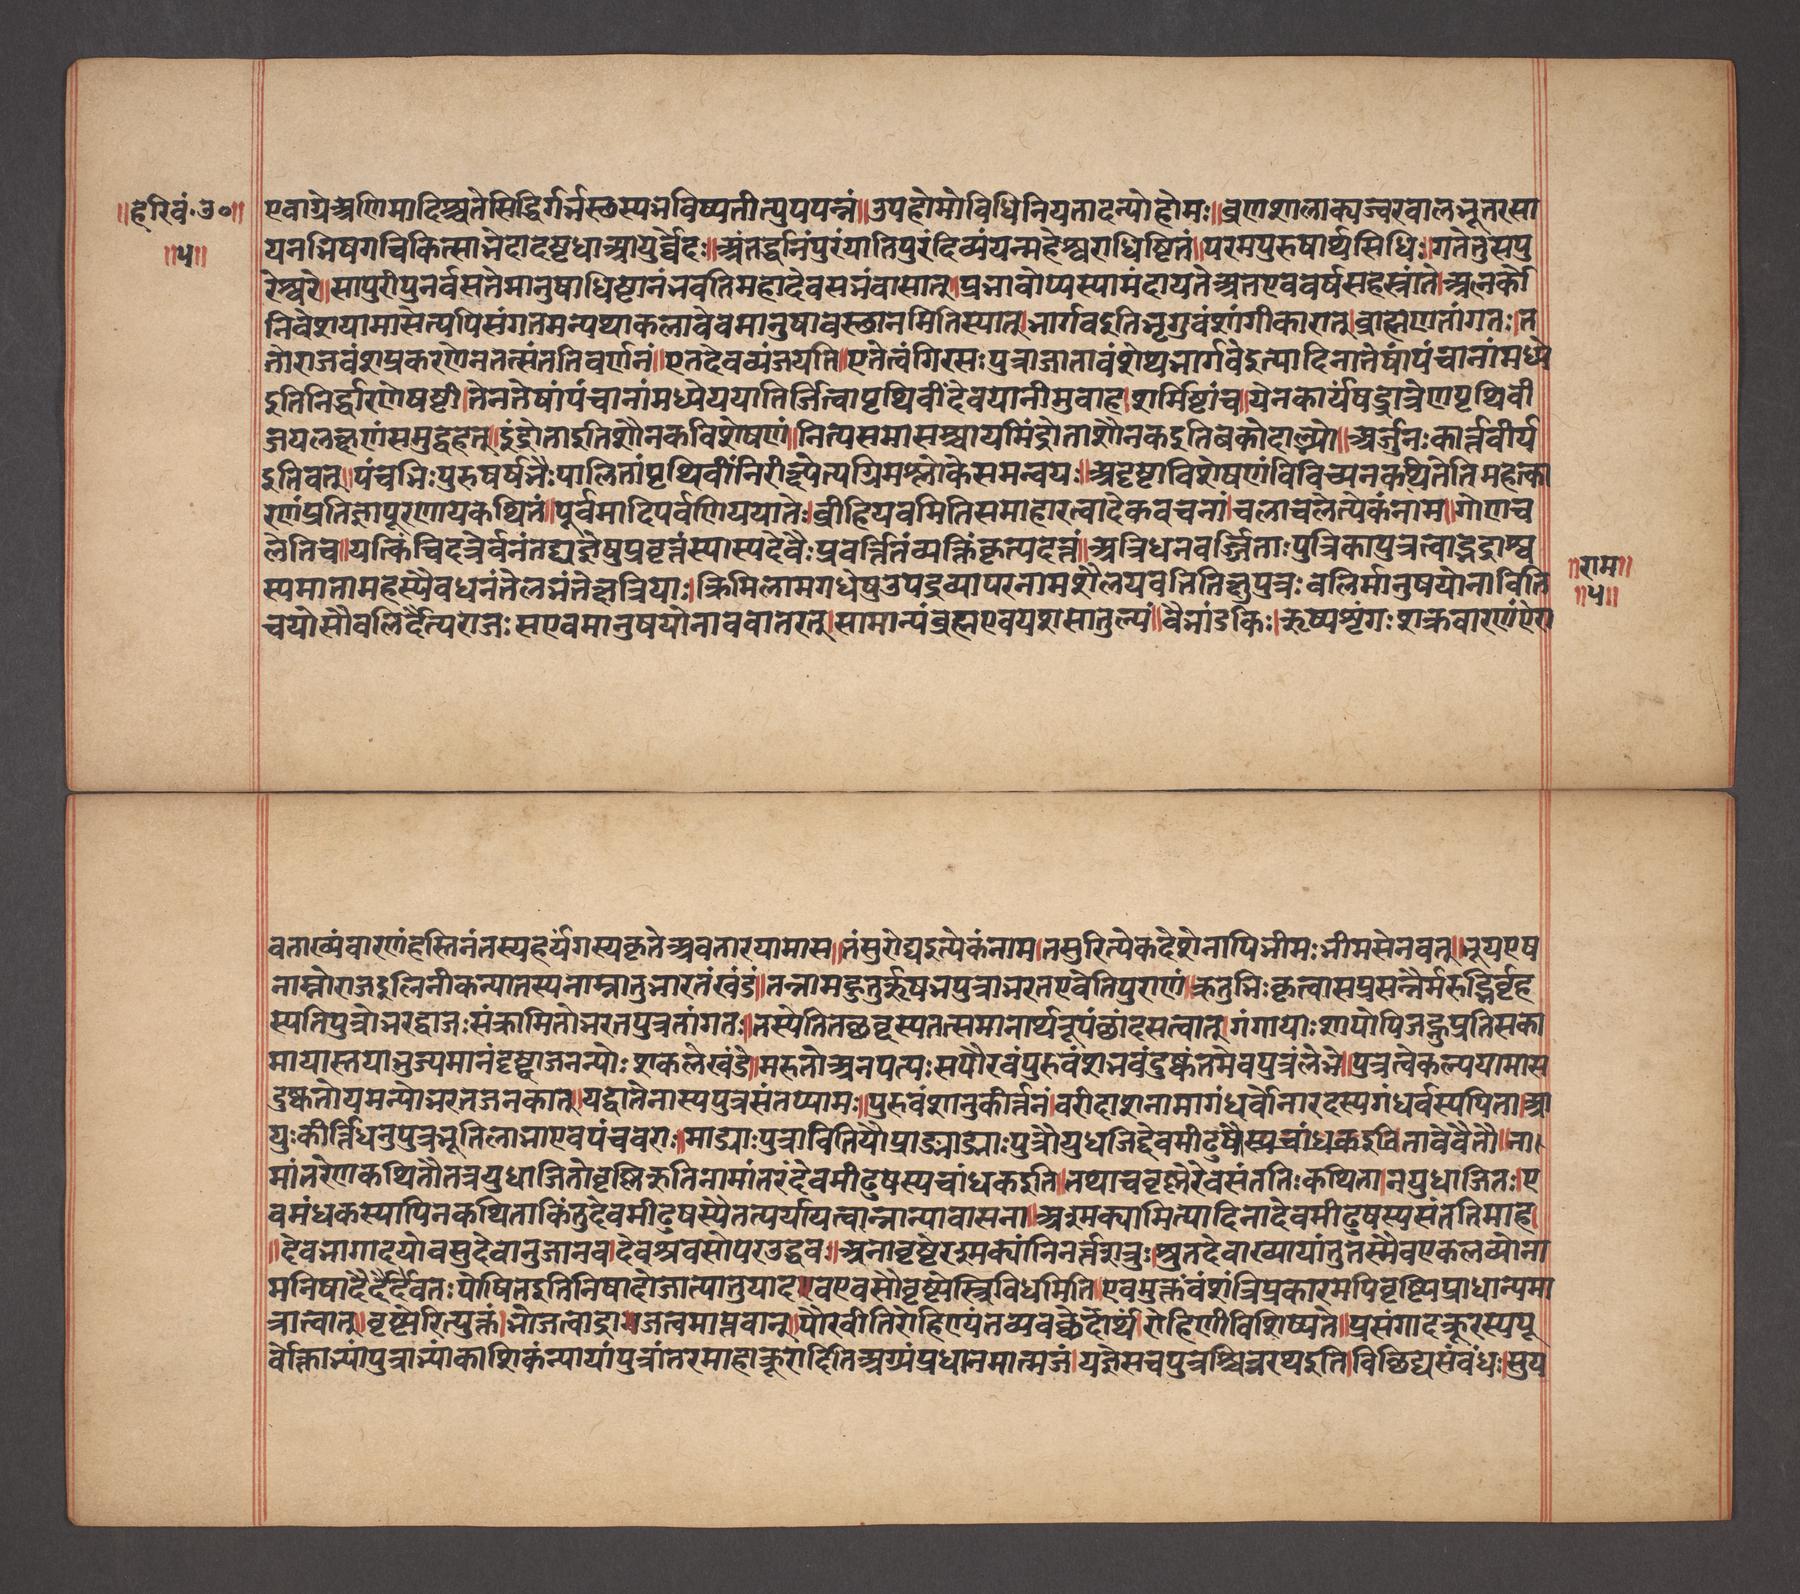 ॥हरिवं॰उ॰॥
॥५॥
एवाग्रेअणिमादिश्चतेसिद्धिर्गर्भस्छस्यभविष्यतीत्युपपन्नं॥उपहोमोविधिनियतादन्योहोमः॥व्रणशालाक्यज्वरबालभूतरसा
यनभिषगचिकित्साभेदादष्टधाआयुर्व्वेदः॥अंतर्द्धनिंपुरंयातिपुरंदिव्यंयन्महेश्वराधिष्टितं॥परमपुरुषार्थसिधिः॥गतेतुसपु
रेश्वरे॥सापुरीपुनर्वसतेमानुषाधिष्टानंभवतिमहादेवसभंवासात्॥प्रभावोप्यस्यामंदायतेअतएववर्षसहस्त्रांते।अलर्को
निवेशयामासेत्यपिसंगतमन्यथाकलावेवमानुषावस्छानमितिस्यात्।भार्गवइतिभृगुवंशांगीकारात्॥ब्राह्मणतांगतः॥त
तोराजवंशप्रकरणेनतत्संततिवर्णनं॥एतदेवव्यंजयति॥एतेत्वंगिरसःपुत्राजातावंशेथभार्गवेइत्यादिनातेषांपंचानांमध्ये
इतिनिर्द्धारणेषष्टी॥तेनतेषांपंचानांमध्येययातिर्जित्वापृथिवींदेवयानीमुवाह।शर्मिष्टांच॥येनकार्यषड्भात्रेणपृथिवी
जयलक्षणंसमुद्वहेत्॥इंद्रोताइतिशौनकविशेषणं॥नित्यसमासश्चायमिंद्रोताशौनकइतिबकोदाल्भ्यो॥अर्जुनःकार्त्तवीर्य
इतिवत्॥पंचभिःपुरुषर्षभैःपालितांपृथिवींनिरीक्ष्येत्यग्रिमश्लोकेसमन्वयः॥अदृष्टाविशेषणंविविच्यनकथितेतिमहत्का
रणंप्रतिज्ञापूरणायकथितं॥पूर्वमादिपर्वणिययातेः॥व्रीहियवमितिसमाहारत्वादेकवचनां।चलाचलेत्येकंनाम॥गोणच
लेतिच॥यत्किंचिदत्रेर्वनंतद्यज्ञेषुप्रवृत्तंस्यास्यदेवैःप्रवर्त्तितंव्यक्तिंकृत्यदत्तं॥अत्रिधनवर्ज्जिताःपुत्रिकापुत्रत्वाद्भद्राश्व
स्यमातामहस्यैवधनंतेलभंतेक्षत्रियाः॥क्रिमिलामगधेषुउपद्रुव्यापरनामशैलयवतितिक्षुपुत्रःबलिर्मानुषयोनाविति
चयोसौबलिर्दैत्यराजःसएवमानुषयोनाववातरत्॥सामान्यंब्रह्मएवयशसातुल्यं॥वैभांडकिः॥ऋष्यशृंगःशक्रवारणंऐरा
॥राम॥
॥५॥
वताख्यंवारणंहस्तिनंतस्यहर्यंगस्यकृतेअवतारयामास॥तंसुरोद्यइत्येकंनाम।तंसुरित्येकदेशेनापिभीमःभीमसेनवत्॥भूयएष
नाम्नोराजइलिनीकन्यातस्यनाम्नातुभारतंखंडं॥तन्नामहेतुर्ऋषभपुत्राभरतएवेतिपुराणं॥क्रतुभिःकृत्वासप्रसन्नैर्मरुद्भिर्वृह
स्पतिपुत्रोभरद्वाजःसंक्रामितोभरतपुत्रतांगतः॥तस्येतितछवृस्यतत्समानार्थनूपंछांदसत्वात्॥गंगायाःशापोपिजह्नुप्रतिसका
मायास्तयाभुज्यमानंदृष्ट्वाजनन्योःशकलेखंडे॥मरुतोअनपत्यःसपौरवंपुरुवंशभवंदुष्कंतमेवपुत्रंलेभे॥पुत्रत्वेकल्पयामास
दुष्कंतोयमन्योभरतजनकात्॥यद्वातेनास्यपुत्रसंतप्यामः॥पुरुवंशानुकीर्त्तनं॥वरीदाशनामागंधर्वोनारदस्यगंधर्वस्यपिता॥आ
युःकीर्त्तिधनुपुत्रभूतिलाभाएवपंचवराः॥माद्र्याःपुत्रावितियौप्राङ्माद्र्याःपुत्रौयुधजिद्देवमीढुषैस्यचांधकइतितावेवैतौ॥ना।
मांतरेणकथितौतत्रयुधाजितोवृष्णिरुतिनामांतरंदेवमीढुषस्यचांधकइति॥तथाचवृष्णेरेवसंततिःकथिता॥नयुधाजितः॥ए
वमंधकस्यापिनकथिताकिंतुदेवमीढुषस्यैतत्पर्यायत्वान्नान्यावासना॥अश्मक्यामित्यादिनादेवमीढुषस्यसंततिमाह॥
॥देवभागादयोवसुदेवानुजानव॥देवश्रवसोपरउद्धवः॥अनावृष्टेरश्मक्यांनिनर्त्तशत्रुः॥श्रुतदेवाख्यायांतुतस्मैवएकलव्योना
मनिषादैर्दैर्दैवतःपोषितइतिनिषादोजात्यातुयाद॥वएवसौवृष्ण्यंस्त्रिविधमिति॥एवमुक्तंवंशंत्रिप्रकारमपिवृष्टिप्राधान्यमा
त्रात्वात्॥वृष्णेरित्युक्तं॥भोजत्वाद्रा॥जत्वमाप्नवान्॥पौरवीतिरोहिण्यंतव्यवच्छेर्दोथं।रोहिणीविशिष्यते॥प्रसंगादक्रूरस्यपू
वेक्तिाभ्यांपुत्राभ्यांकाशिकंन्यायांपुत्रांतरमाहाक्रूरादितिअग्र्यंप्रधानमात्मजं॥यज्ञेसचपुत्रश्चित्ररथइति॥विछिद्यसंबंधः॥सुप